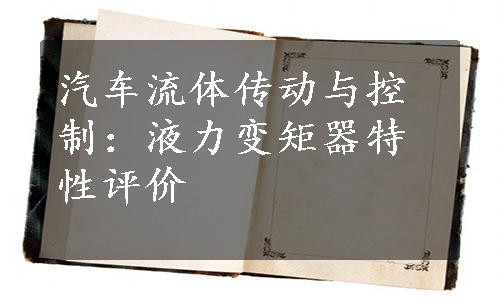 汽车流体传动与控
制：液力变矩器特
性评价